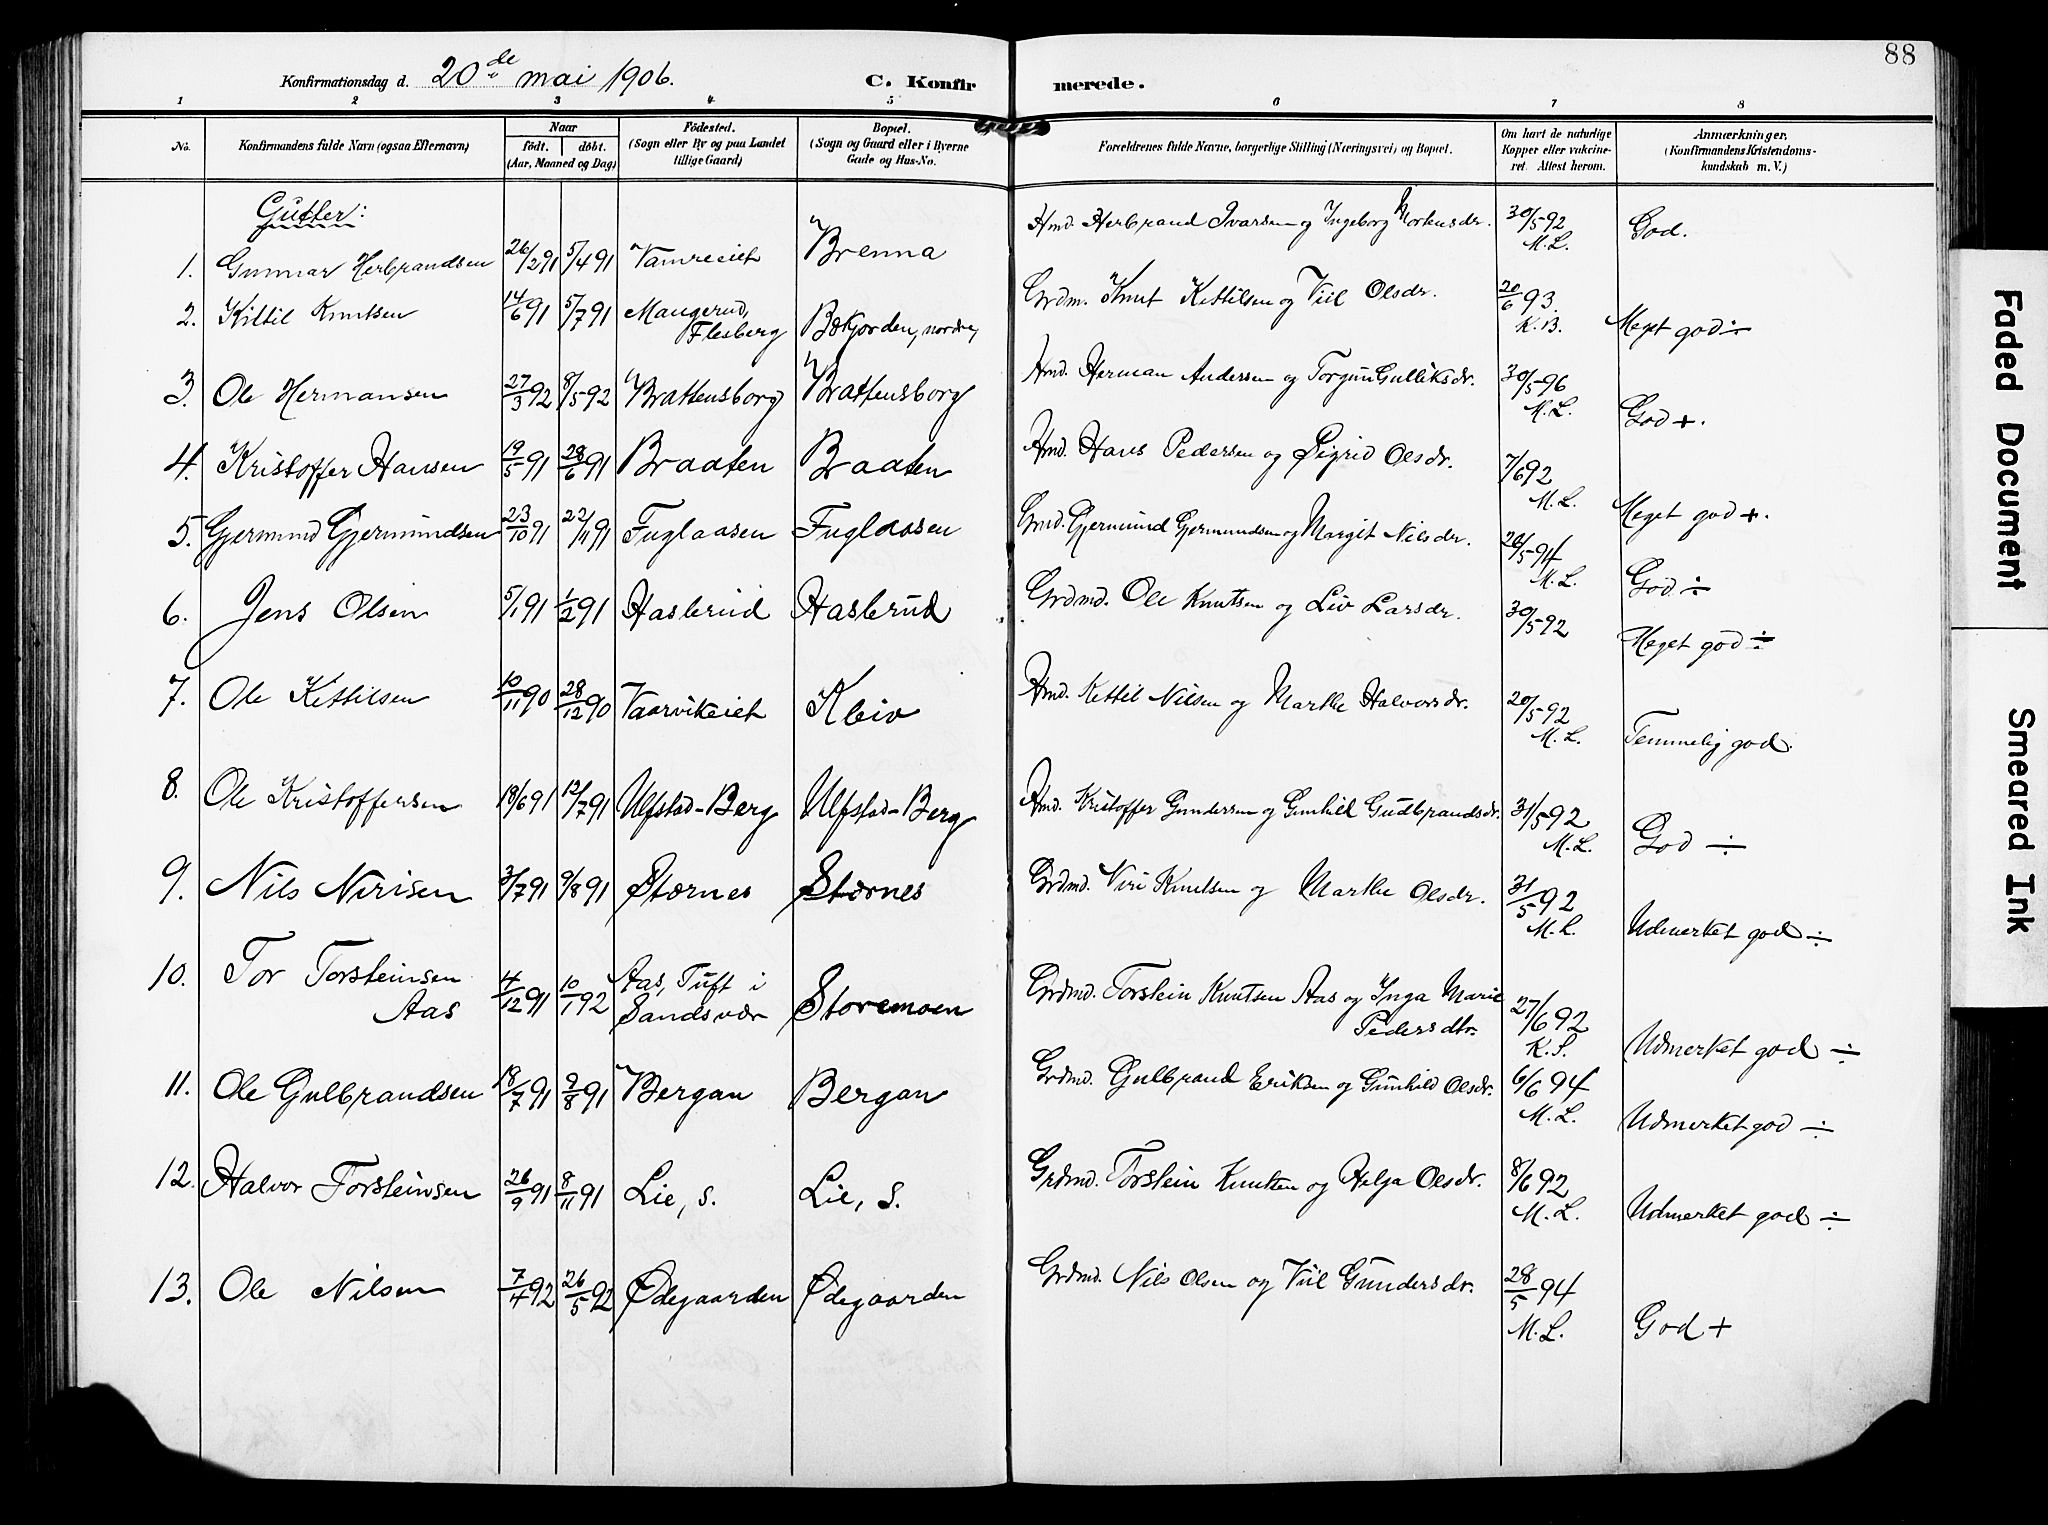 88
Konfirmationsdag d. 20de mai 1906. C. Konfir merede.
1 2 3 4 5 6 7 8
No. Konfirmandens fulde Navn (ogsaa Efternavn) Naar født. døbt. (Aar, Maaned og Dag) Fødested. (Sogn eller By og paa Landet tillige Gaard) Bopæl. (Sogn og Gaard eller i Byerne Gade og Hus-No. Forældrenes fulde Navne, borgerlige Stilling (Næringsvei) og Bopæl. Om havt de naturlige Kopper eller vakcineret. Attest herom. Anmærkninger. (Konfirmandens Kristendomskundskab m. V.)
Gutter:
1. Gunnar Herbrandsen 26/2 91 5/4 91 Vamreeiet Brenna Hmd. Herbrand Ivarsen og Ingeborg Mortensdr. 30/5 92 M. L. God.
2. Kittil Knutsen 14/6 91 5/7 91 Maugerud, Flesberg Bækjorden, nordre, Grdm. Knut Kittilsen og Viil Olsdr. 20/6 93. K. B. Meget god ÷
3. Ole Hermansen 27/3 92 8/5 92 Brattensborg Brattensborg Hmd. Herman Andersen og Torgun Gulliksdr. 30/5 96 M. L. God +.
4. Kristoffer Hansen 19/5 91 28/6 91 Braaten Braaten Hmd. Hans Pedersen og Sigrid Olsdr. 7/6 92 M. L. Meget god +.
5. Gjermund Gjermundsen 23/10 91 22/11 91 Fuglaasen Fuglaasen Grmd. Gjermund Gjermundsen og Margit Nilsdr. 26/5 94 M. L. God ÷
6. Jens Olsen 5/1 91 1/2 91 Haslerud Haslerud Grdmd. Ole Knutsen og Liv Larsdr. 30/5 92 Meget god ÷
7. Ole Kittilsen 10/11 90 28/12 90 Vaarvikeiet Kleiv Hmd. Kettil Nilsen og Marthe Halvorsdr. 20/5 92 M. L. Temmelig god.
8. Ole Kristoffersen 18/6 91 12/7 91 Ulfstad-Berg Ulfstad-Berg Hmd. Kristoffer Gundersen og Gunhild Gudbrandsdr. 31/5 92 M. L. God ÷
9. Nils Nirisen 3/7 91 9/8 91 Stærnes Stærnes Grdmd. Niri Knutsen og Marthe Olsdr. 31/5 92 M. L. Udmerket god ÷
10. Tor Torsteinsen Aas 4/12 91 10/1 92 Aas, Tuft i Sandsvær Storemoen Grdmd. Torstein Knutsen Aas og Inga Marie Pedersdtr. 27/6 92 K. S. Udmerket god ÷
11. Ole Gulbrandsen 18/7 91 9/8 91 Bergan Bergan Grdmd. Gulbrand Eriksen og Gunhild Olsdr. 6/6 94 M. L. Udmerket god ÷
12. Halvor Torsteinsen 26/9 91 8/11 91 Lie, s. Lie, s. Grdmd. Torstein Knutsen og Helga Olsdr. 8/6 92 M. L. Udmerket god ÷
13. Ole Nilsen 7/4 92 26/5 92 Ødegaarden Ødegaarden Grdmd. Nils Olsen og Viil Gundersdr. 28/5 94 M. L. God +
Faded Document
Smeared Ink